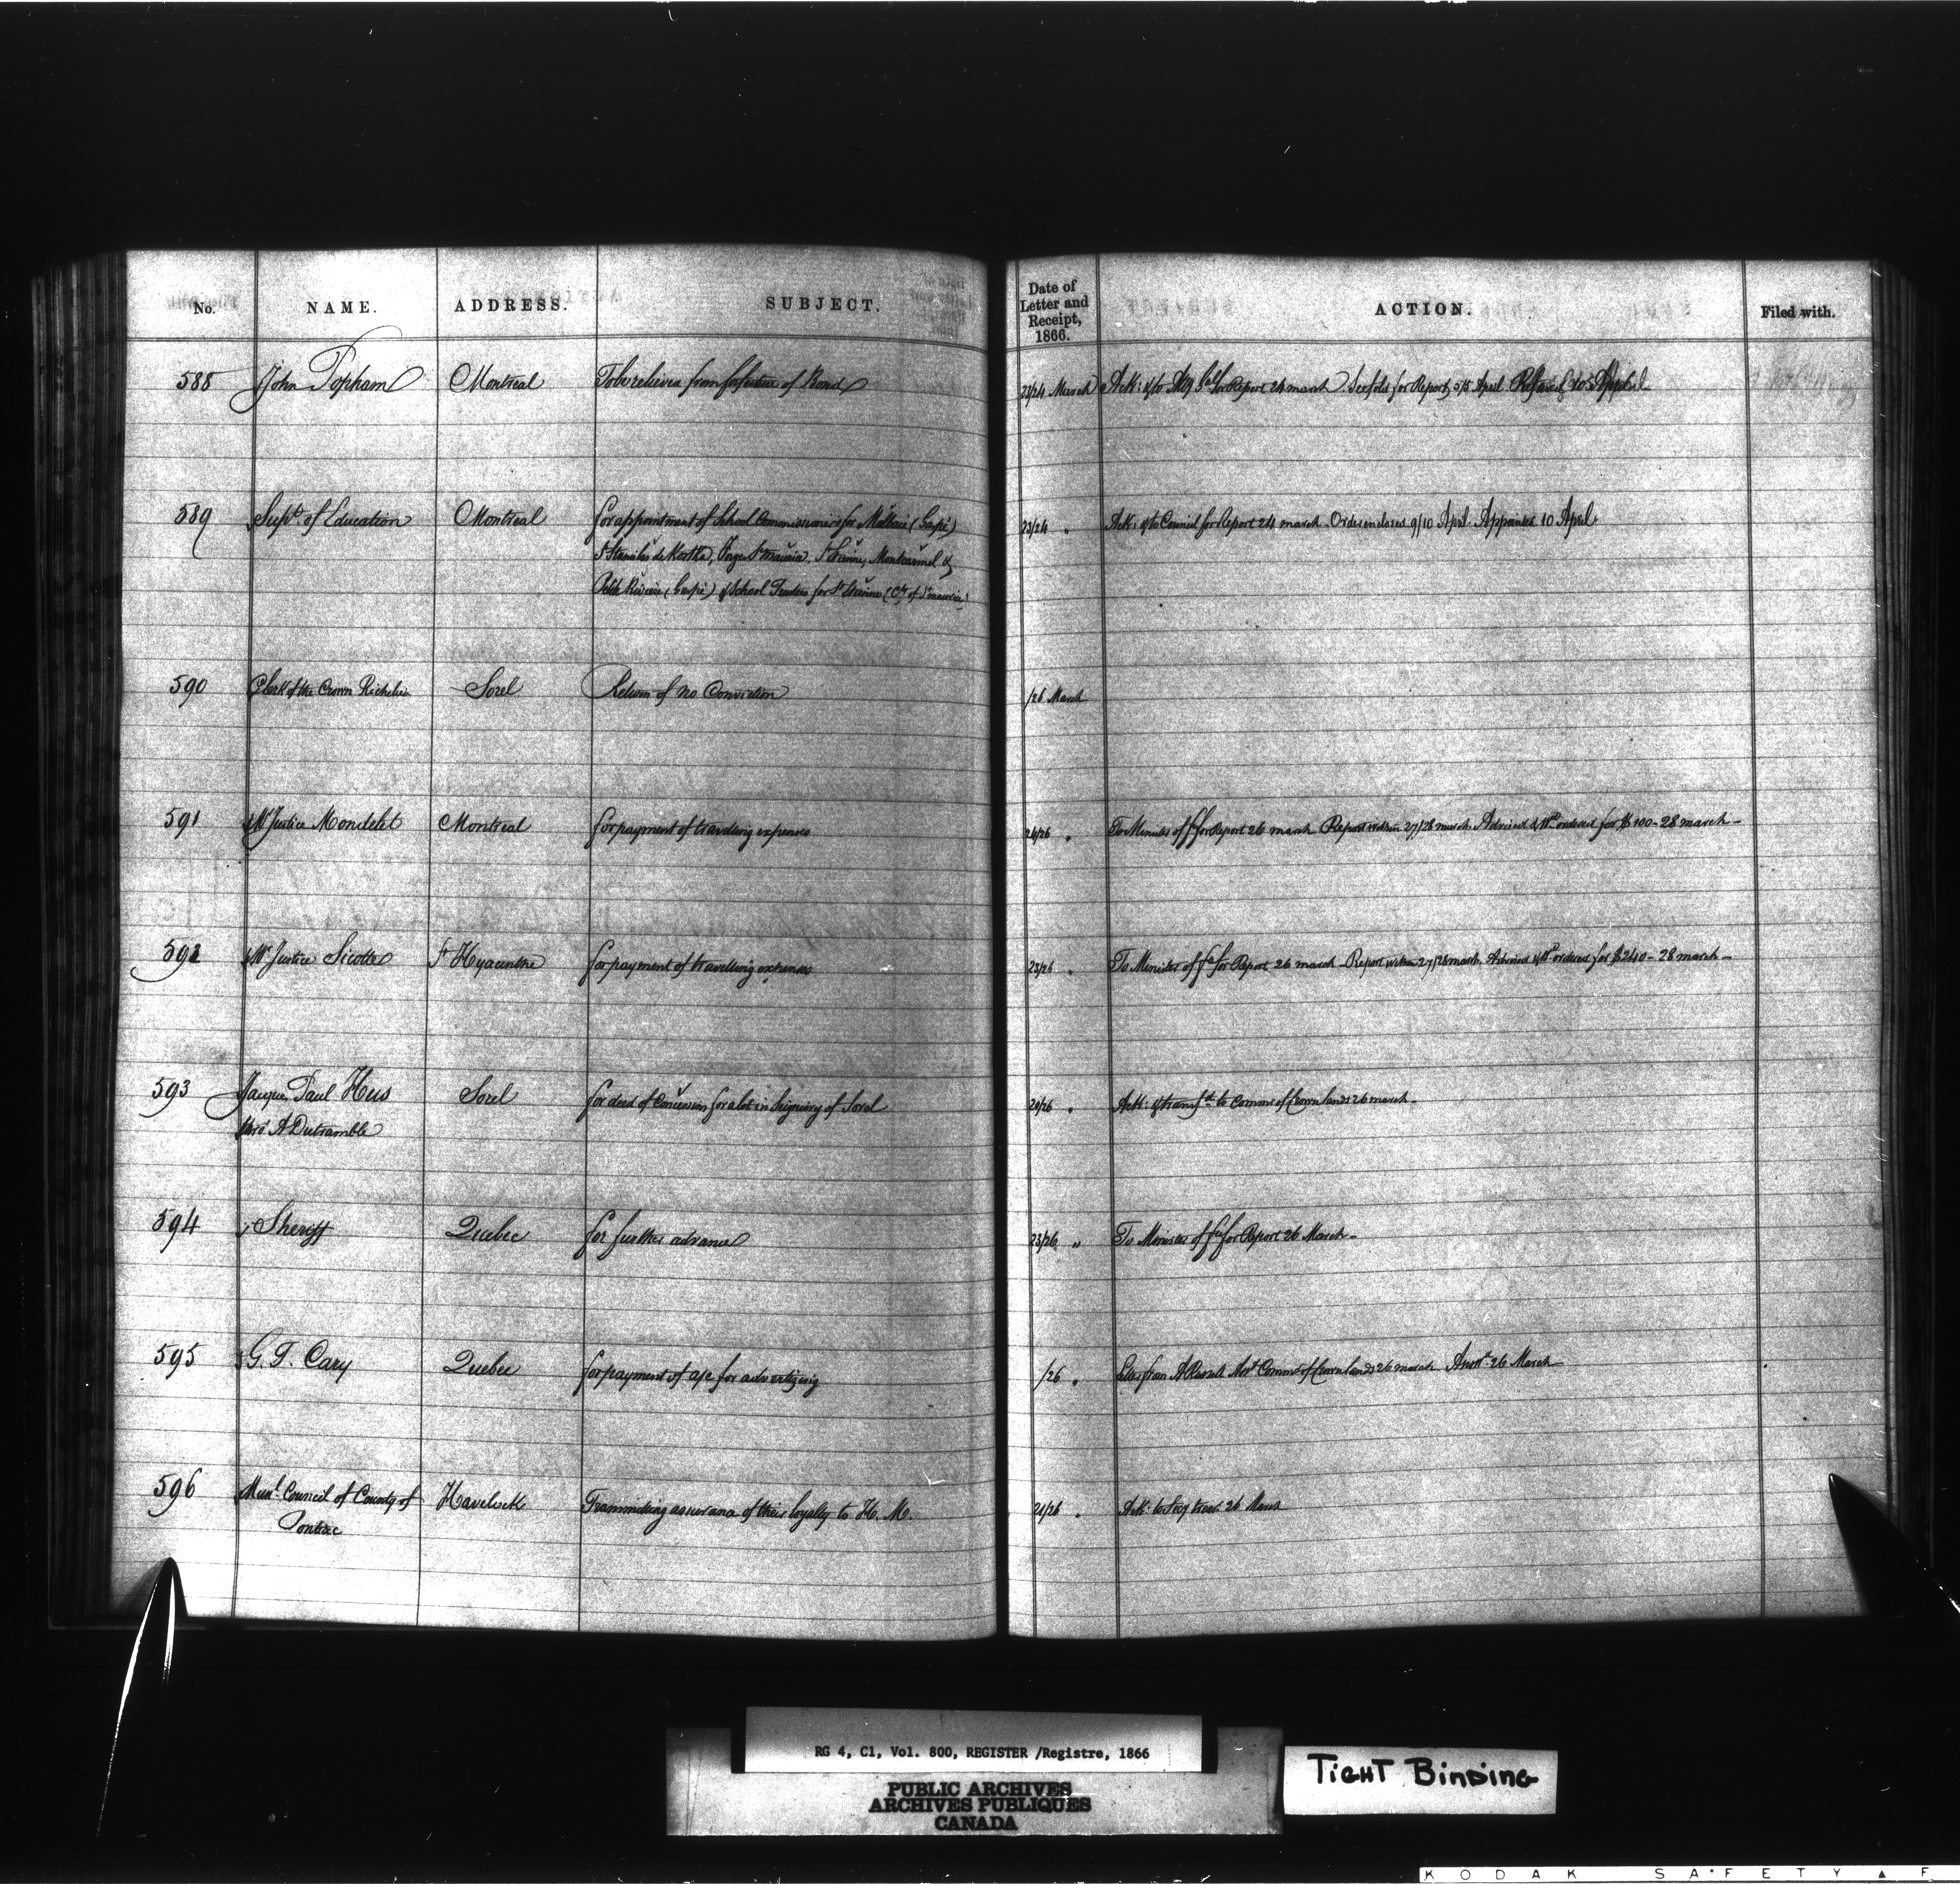 No. NAME. ADDRESS. SUBJECT. Date of Letter and Receipt, 1866. ACTION. Filed with.
588 John Topham Montreal To be relieved from forfeiture of Bond 23/24 March Ack: & to Atty Genl for Report 24 march for Report 5/5 April Refused 10 April
589 Supt. of Education Montreal for appointment of School Commissioners for Malbaie (Gaspé) 23/24 " Ack: & to Council for Report 24 march - Order encloses 9/10 April - Appointed 10 April
St Stanislas de Kostka, Forges St Maurice, St Etienne, Montcarmel &
Petite Rivière (Gaspé) & School Trustees for St Etienne (Cty of St Maurice)
590 Clerk of the Crown Richelieu Sorel Return of no Conviction /26 March
591 Mr Justice Mondelet Montreal for payment of travelling expenses 24/26 " To Minister of ffce for Report 26 march Report within 27/28 march. Advised & Wt ordered for $100 - 28 march -
592 Mr Justice Sicotte St Hyacinthe for payment of travelling expenses 23/26 " To Minister of fce for Report 26 march - Report within 27/28 march. Advised & Wt ordered for $240 - 28 march -
593 Jacques Paul Hus Sorel for deed of Concession for a lot in Seigniory of Sorel 20/26 " Ack: & transfd to Commr of Crown lands 26 march -
pr A Dutramble
594 Sheriff Quebec for further advance 23/26 " To Minister of fce for Report 26 March -
595 G. T. Cary Quebec for payment of a/c for advertizing /26 " from A Russell Asst Commr of Crown lands 26 march Ansd 26 March
596 Munl. Council of County of Havelock Transmitting assurance of their loyalty to H. M. 21/26 " Ack: to 26 March
Pontiac
RG 4, C1, Vol. 800, REGISTER /Registre, 1866
PUBLIC ARCHIVES
ARCHIVES PUBLIQUES
CANADA
TIGHT BINDING
KODAK SAFETY ▲ F